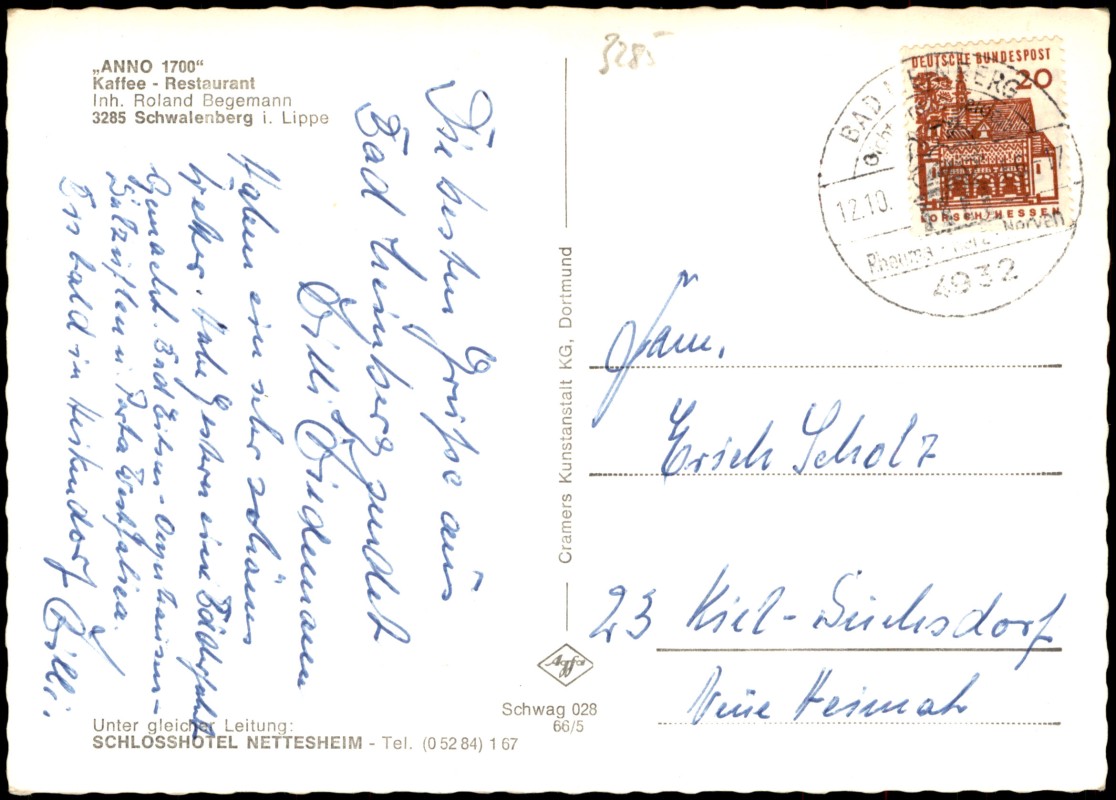 „ANNO 1700“
Kaffee - Restaurant
Inh. Roland Begemann
3285 Schwalenberg i. Lippe
Die besten Grüße aus
Bad Meinberg sendet
Willi
Haben ein sehr schönes
Wetter. Habe Gestern eine Bäderfahrt
Gemacht. Bad Eilsen - Oeynhausen -
Salzuflen u. Porta Westfalica.
Bis bald in Heikendorf Willi.
Unter gleicher Leitung:
SCHLOSSHOTEL NETTESHEIM - Tel. (0 52 84) 1 67
Cramers Kunstanstalt KG, Dortmund
Agfa
Schwag 028
66/5
3285
DEUTSCHE BUNDESPOST
20
LORSCH/HESSEN
BAD MEINBERG
12.10.
Rheuma Herz Nerven
4932
Fam.
Erich Scholz
23 Kiel-Suchsdorf
Neue Heimat